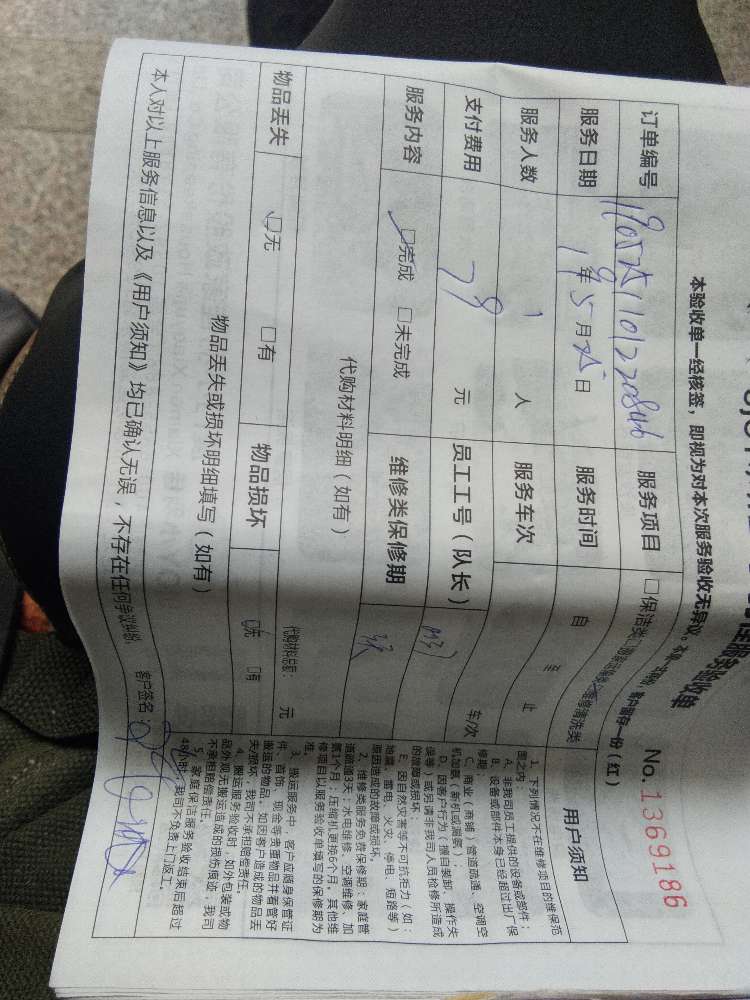 服务验收单
本验收单一经核签，即视为对本次服务验收无异议。
份（红）
No.1369186
订单编号
服务项目 □保洁类
清洗类
服务日期 19年5月25日 服务时间 自 至 止
服务人数 1人 服务车次 车/次
支付费用 79 元 员工工号（队长）
服务内容 □完成 □未完成 维修类保修期
代购材料明细（如有）
代购材料总额： 元
物品丢失 □无 □有 物品损坏 □无 □有
物品丢失或损坏明细填写（如有）
本人对以上服务信息以及《用户须知》均已确认无误，不存在任何争议纠纷。 客户签名：
用户须知
1、下列情况不在维修项目的维保范
围之内：
A、非我司员工提供的设备或部件；
B、设备或部件本身已经超过出厂保
修期；
C、商业（商铺）管道疏通、空调空
机加氨（新机或漏氨）；
D、因客户行为（擅自装卸、操作失
误等）或另请非我司人员检修所造成
的故障或损坏。
E、因自然灾害等不可抗拒力（如：
地震、雷电、火灾、停电、短路等）
原因造成的故障或损坏。
2、维修类服务免费保修期：家庭管
道疏通3天；水电维修、空调维修、加
氨1个月；压缩机更换6个月，其他维
修项目以服务验收单填写的保修期为
准。
3、搬运服务中，客户应随身保管证
件、首饰、现金等贵重物品并看管好
搬运的物品，如因客户造成的物品丢
失/损坏，我司不承担赔偿责任。
4、搬运服务验收时，如外包装或物
品外观无搬运造成的损伤痕迹，我司
不承担赔偿责任。
5、家庭保洁服务验收结束后超过
48小时，我司不负责上门返工。